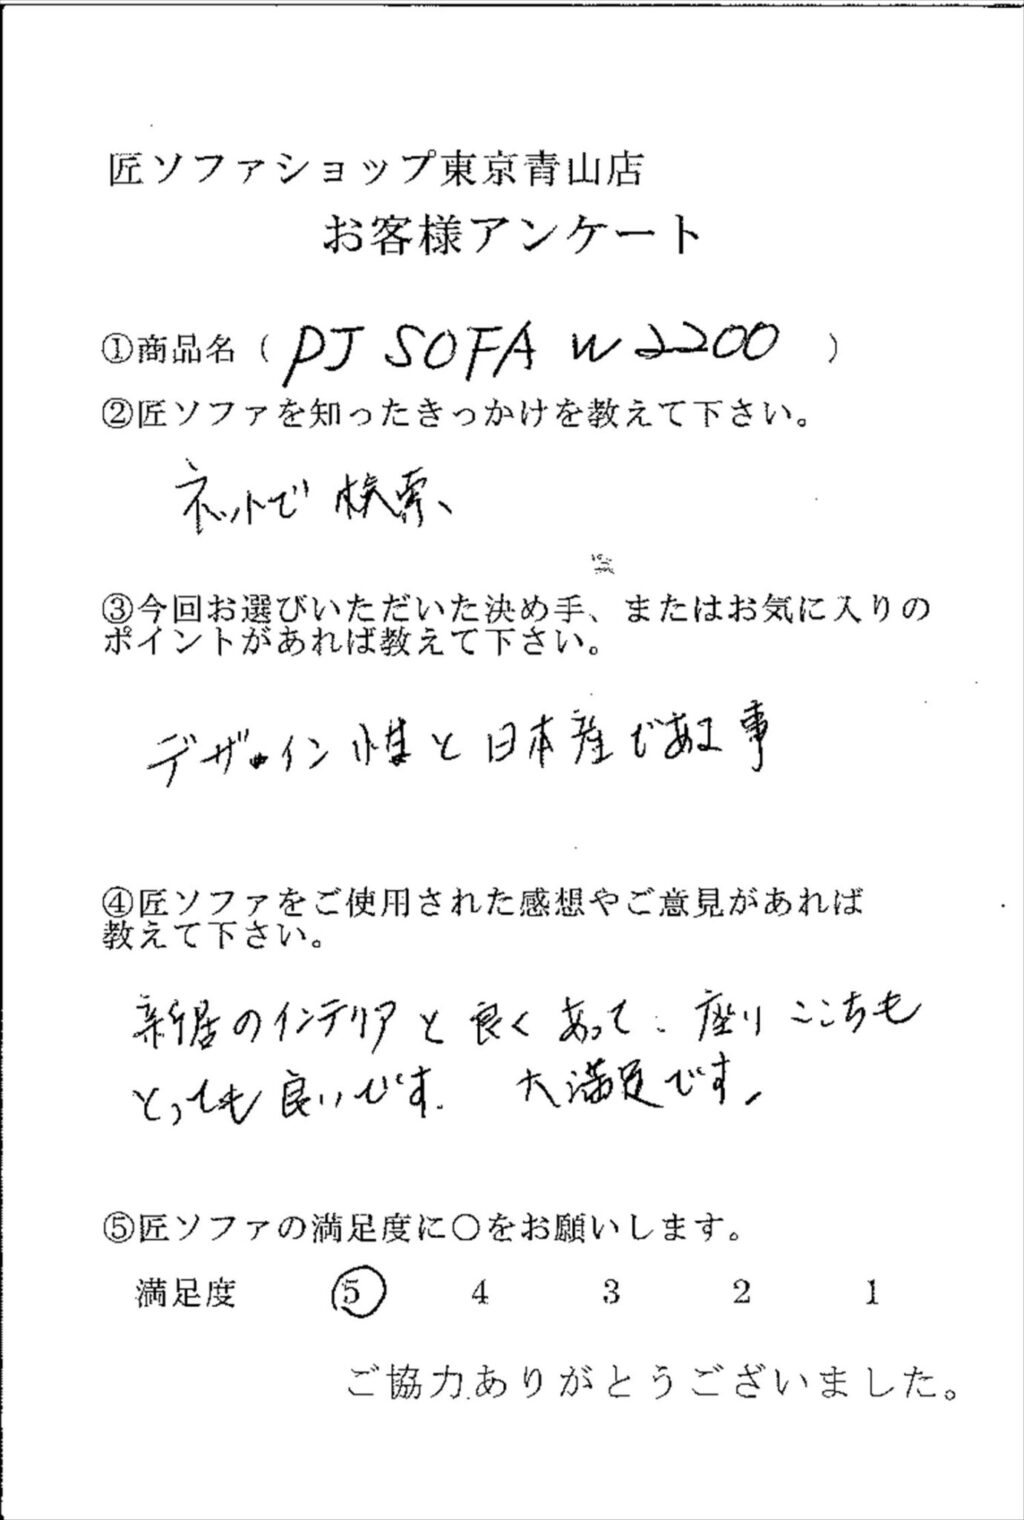 匠ソファショップ東京青山店
お客様アンケート
①商品名（ PJ SOFA W2200 ）
②匠ソファを知ったきっかけを教えて下さい。
ネットで検索、
③今回お選びいただいた決め手、またはお気に入りの
ポイントがあれば教えて下さい。
デザイン性と日本産である事
④匠ソファをご使用された感想やご意見があれば
教えて下さい。
新居のインテリアと良くあって、座りここちも
とっても良いです. 大満足です。
⑤匠ソファの満足度に〇をお願いします。
満足度 5 4 3 2 1
ご協力ありがとうございました。